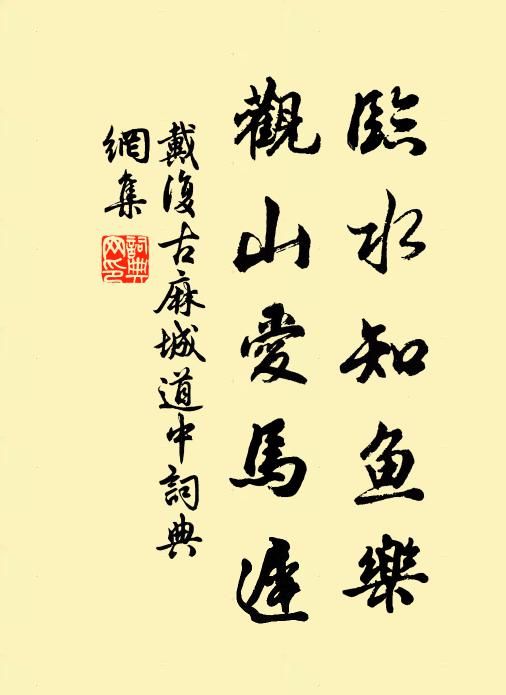 臨水知鱼樂
觀山愛馬遲
戴復古麻城道中詞典
網集
詞典
网印